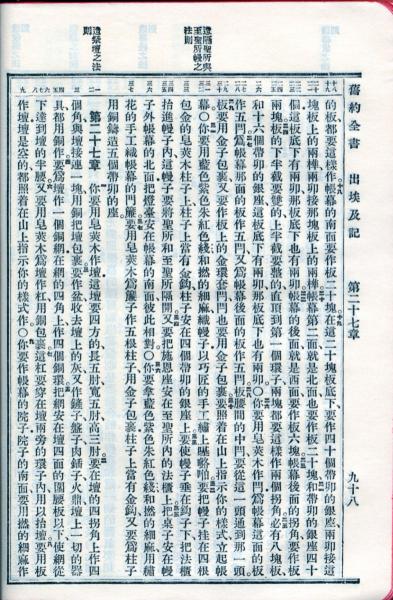 舊約全書 出埃及記 第二十七章 九十八
遮隔聖所與
至聖所幔之
法則
造祭壇之法
則
的板都要這樣作帳幕的南面要作板二十塊在這二十塊板底下要作四十個帶卯的銀座兩卯接這
塊板上的兩榫兩卯接那塊板上的兩榫帳幕第二面就是北面也要作板二十塊和帶卯的銀座四十
個這板底下有兩卯那板底下也有兩卯帳幕的後面就是西面要作板六塊帳幕後面的拐角要作板
兩塊板的下半截要雙的上半截要整的直頂到第一個環子兩塊都要這樣作兩個拐角必有八塊板
和十六個帶卯的銀座這板底下有兩卯那板底下也有兩卯○你要用皂莢木作閂爲帳幕這面的板
作五閂爲帳幕那面的板作五閂又爲帳幕後面的板作五閂板腰間的中閂要從這一頭通到那一頭
板要用金子包裹又要作板上的金環套閂閂也要用金子包裹要照着在山上指示你的樣式立起帳
幕○你要用藍色紫色朱紅色綫和撚的細麻織幔子以巧匠的手工繡上要把幔子挂在四根
包金的皂莢木柱子上柱子上當有金鈎柱子安在四個帶卯的銀座上要使幔子垂在鈎子下把法櫃
抬進幔子內這幔子要將聖所和至聖所隔開又要把施恩座安在至聖所內的法櫃上把桌子安在幔
子外帳幕的北面把燈臺安在帳幕的南面彼此相對○你要拿藍色紫色朱紅色綫和撚的細麻用繡
花的手工織帳幕的門簾要用皂莢木爲簾子作五根柱子用金子包裹柱子上當有金鈎又要爲柱子
用銅鑄造五個帶卯的座
第二十七章 你要用皂莢木作壇這壇要四方的長五肘寬五肘高三肘要在壇的四拐角上作四
個角與壇接連一塊用銅把壇包裹要作盆收去壇上的灰又作鏟子盤子肉鍤子火鼎壇上一切的器
具都用銅作要爲壇作一個銅網在網的四角上作四個銅環把網安在壇四面的圍腰板以下使網從
下達到壇的半腰又要用皂莢木爲壇作杠用銅包裹這杠要穿在壇兩旁的環子內用以抬壇要用板
作壇壇是空的都照着在山上指示你的樣式作○你要作帳幕的院子院子的南面要用撚的細麻作